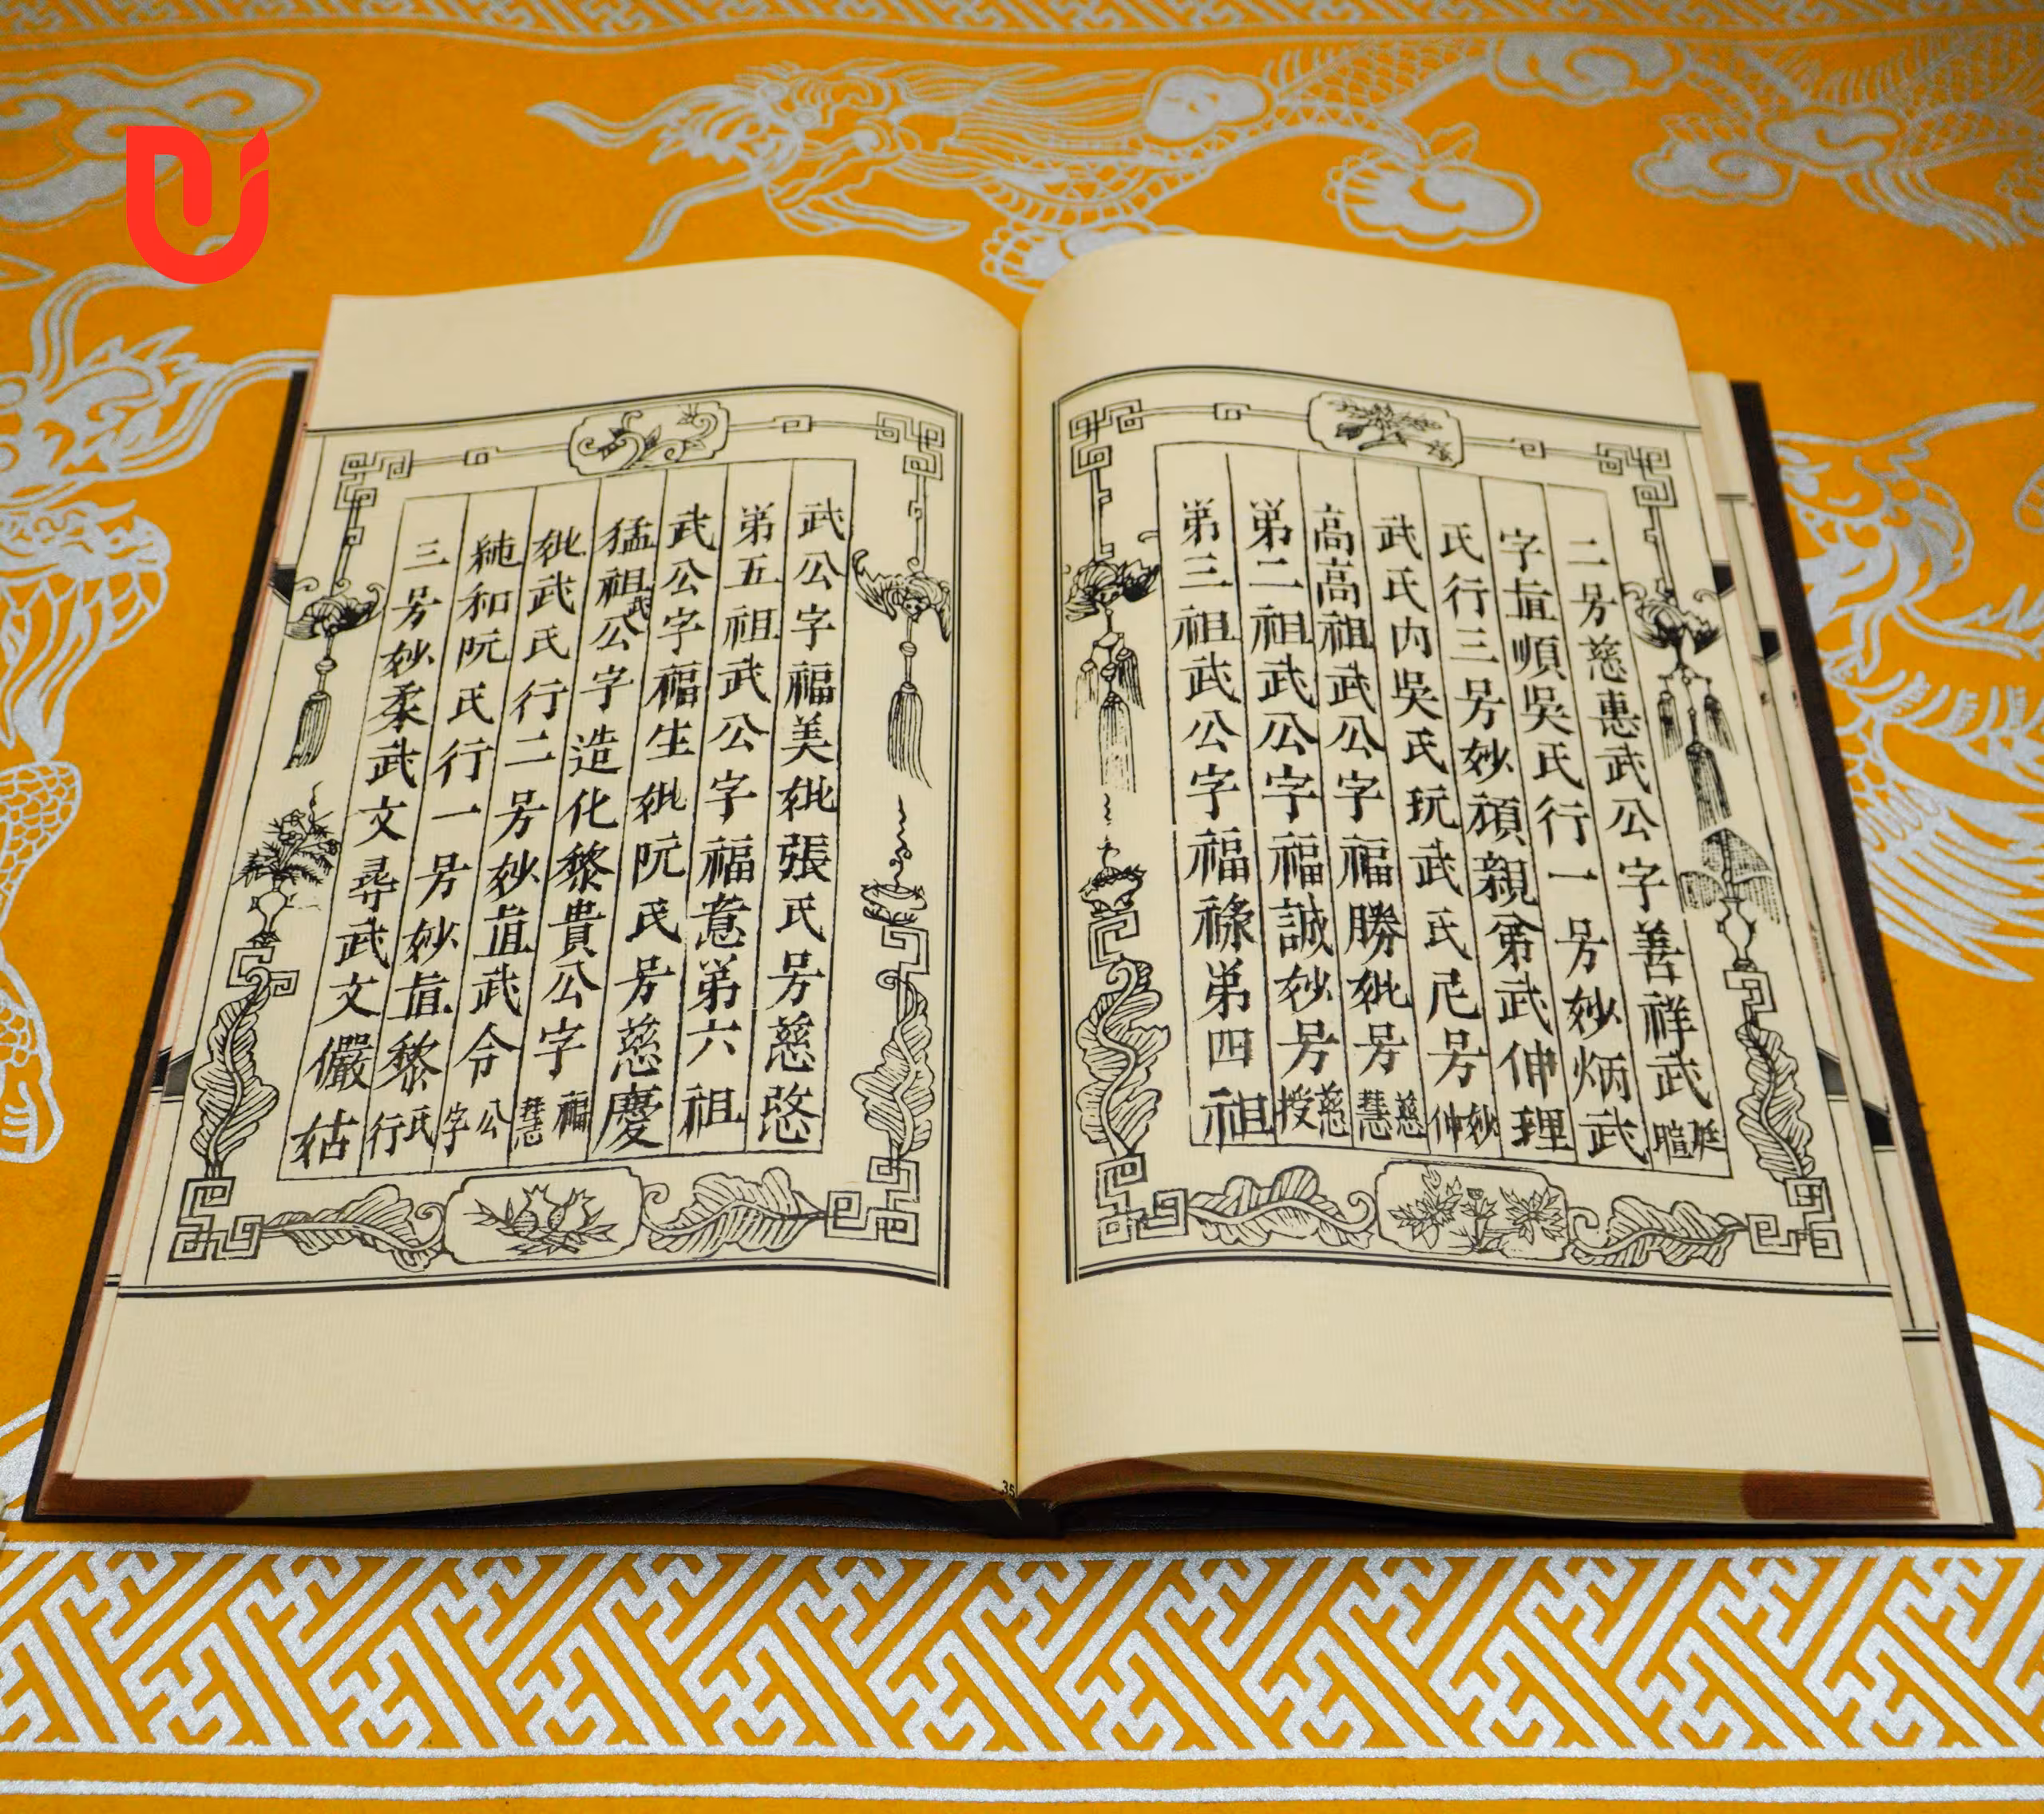 二号慈惠武公字善祥武珽暄
字㥁順吳氏行一号妙炳武
氏行三号妙頑親弟武伸理
武氏内吳氏玩武氏尼号妙仲
高高祖武公字福勝妣号慈慧
第二祖武公字福誠妙号慈授
第三祖武公字福祿第四祖
武公字福美妣張氏号慈愍
第五祖武公字福意第六祖
武公字福生妣阮氏号慈慶
猛祖武公字造化黎貴公字福慧
妣武氏行二号妙㥁武令公字
純和阮氏行一号妙㥁黎氏行
三号妙柔武文尋武文儼姑
35